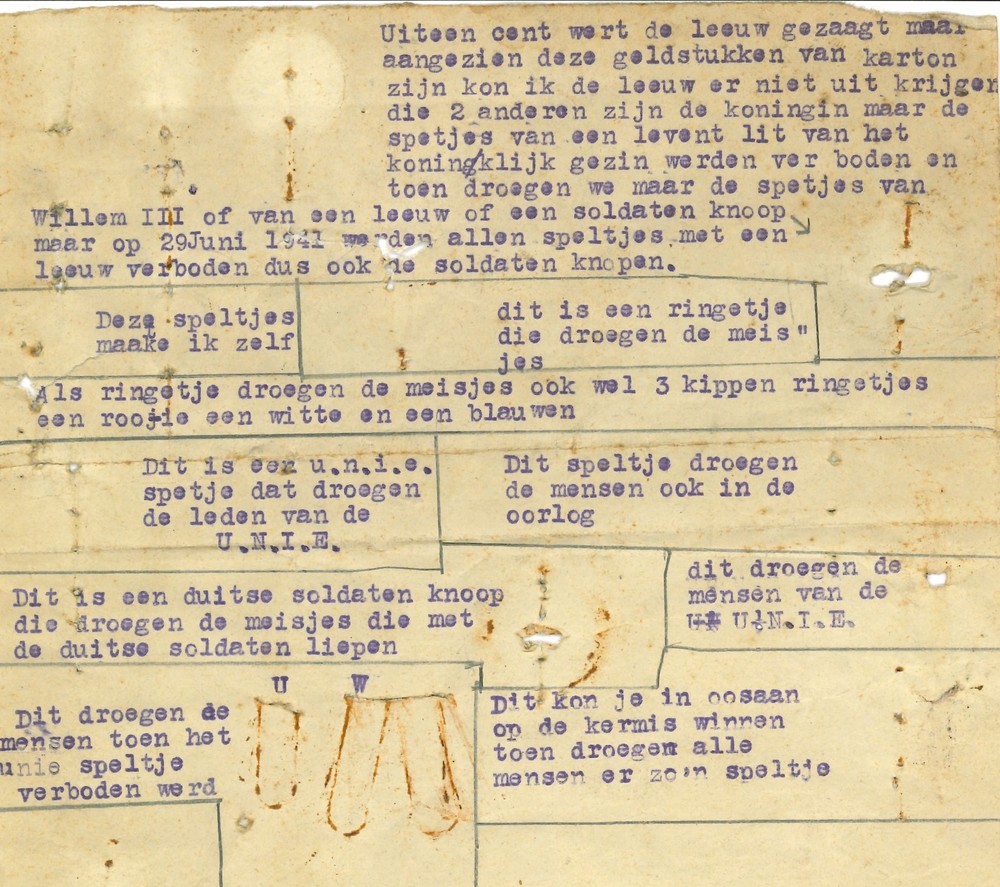 Uiteen cent wert de leeuw gezaagt maar
aangezien deze geldstukken van karton
zijn kon ik de leeuw er niet uit krijgen
die 2 anderen zijn de koningin maar de
spetjes van een levent lit van het
koningklijk gezin werden ver boden en
toen droegen we maar de spetjes van
Willem III of van een leeuw of een soldaten knoop
maar op 29Juni 1941 werden allen speltjes met een
leeuw verboden dus ook de soldaten knopen.
Deze speltjes
maakte ik zelf
dit is een ringetje
die droegen de meis"
jes
Als ringetje droegen de meisjes ook wel 3 kippen ringetjes
een roojie een witte en een blauwen
Dit is een u.n.i.e.
spetje dat droegen
de leden van de
U.N.I.E.
Dit speltje droegen
de mensen ook in de
oorlog
Dit is een duitse soldaten knoop
die droegen de meisjes die met
de duitse soldaten liepen
dit droegen de
mensen van de
U.N.I.E.
U W
Dit droegen de
mensen toen het
unie speltje
verboden werd
Dit kon je in oosaan
op de kermis winnen
toen droegen alle
mensen er zo'n speltje